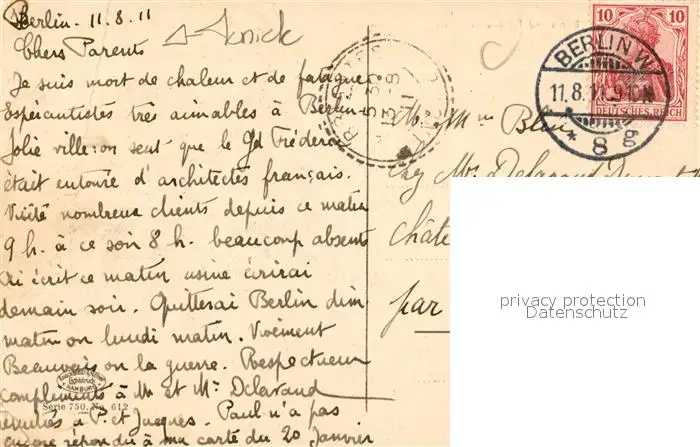 Berlin - 11.8.11
Chers Parents
Je suis mort de chaleur et de fatigue
Espérantistes très aimables à Berlin
Jolie ville: on sent que le Gd Fréderic
était entouré d'architectes français.
Visité nombreux clients depuis ce matin
9 h. à ce soir 8 h. beaucoup absents
Ai écrit ce matin usine écrirai
demain soir. Quitterai Berlin dim
matin ou lundi matin. Vivement
Beauvais ou la guerre. Respectueux
compléments à M et Me Delavaud
à P. et Jacques. Paul n'a pas
encore répondu à ma carte du 20 Janvier
Serie 750, No. 612
HAMBURG
10 10
DEUTSCHES REICH
BERLIN W
11.8.11.9-10N
* 8 g
M. Mme
chez Mr Delavaud
Châte
par
privacy protection
Datenschutz